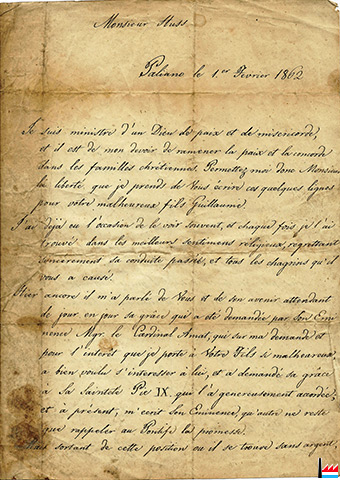 Monsieur Huss
Paliano le 1.er Fevrier 1862
Je suis ministre d'un Dieu de paix et de misericorde,
et il est de mon devoir de ramener la paix et la concorde
dans les familles chrétiennes. Permettez-moi donc Monsieur
la liberté que je prends de Vous écrire ces quelques lignes
pour votre malheureux fils Guillaume.
J'ai déjà eu l'occasion de le voir souvent, et chaque fois je l'ai
trouvé dans les meilleurs sentimens religieux, regrettant
sincerement sa conduite passée, et tous les chagrins qu'il
vous a causé.
Hier encore il m'a parlé de Vous et de son avenir attendant
de jour en jour sa grâce qui a été demandée par Son Emi
nence Mgr. le Cardinal Amat, qui sur ma demande et
pour l'interêt que je porte à Votre Fils si malheureux
a bien voulu s'interesser à lui, et a demandé sa grâce
à Sa Sainteté Pie IX. qui l'a genereusement accordée,
et à présent, m'ecrit son Eminence, qu'autre ne reste
que rappeler au Pontife la promesse.
Mais sortant de cette position ou il se trouve sans argent,